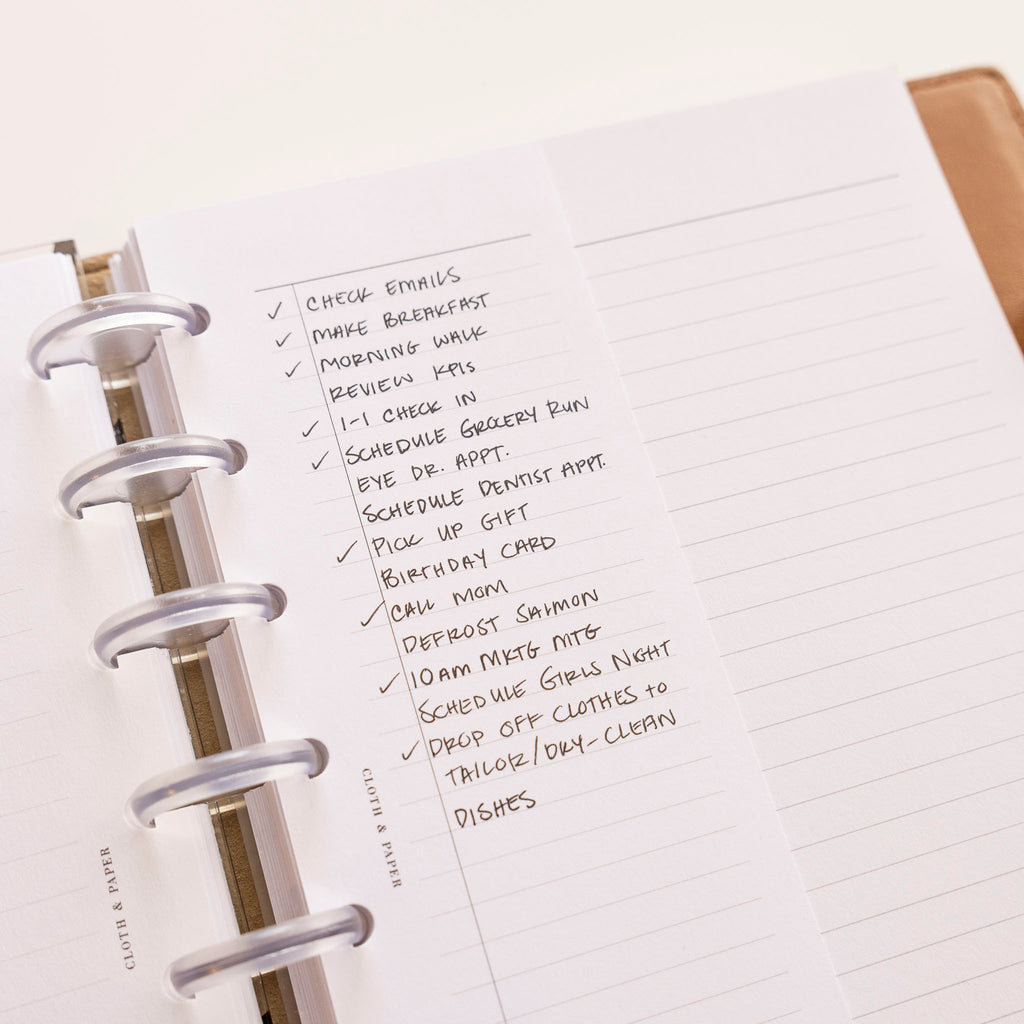 ✓ CHECK EMAILS
✓ MAKE BREAKFAST
✓ MORNING WALK
REVIEW KPIS
✓ 1-1 CHECK IN
✓ SCHEDULE GROCERY RUN
EYE DR. APPT.
SCHEDULE DENTIST APPT.
✓ PICK UP GIFT
BIRTHDAY CARD
✓ CALL MOM
DEFROST SALMON
✓ 10am MKTG MTG
SCHEDULE GIRLS NIGHT
✓ DROP OFF CLOTHES to
TAILOR/DRY-CLEAN
DISHES
CLOTH & PAPER
CLOTH & PAPER